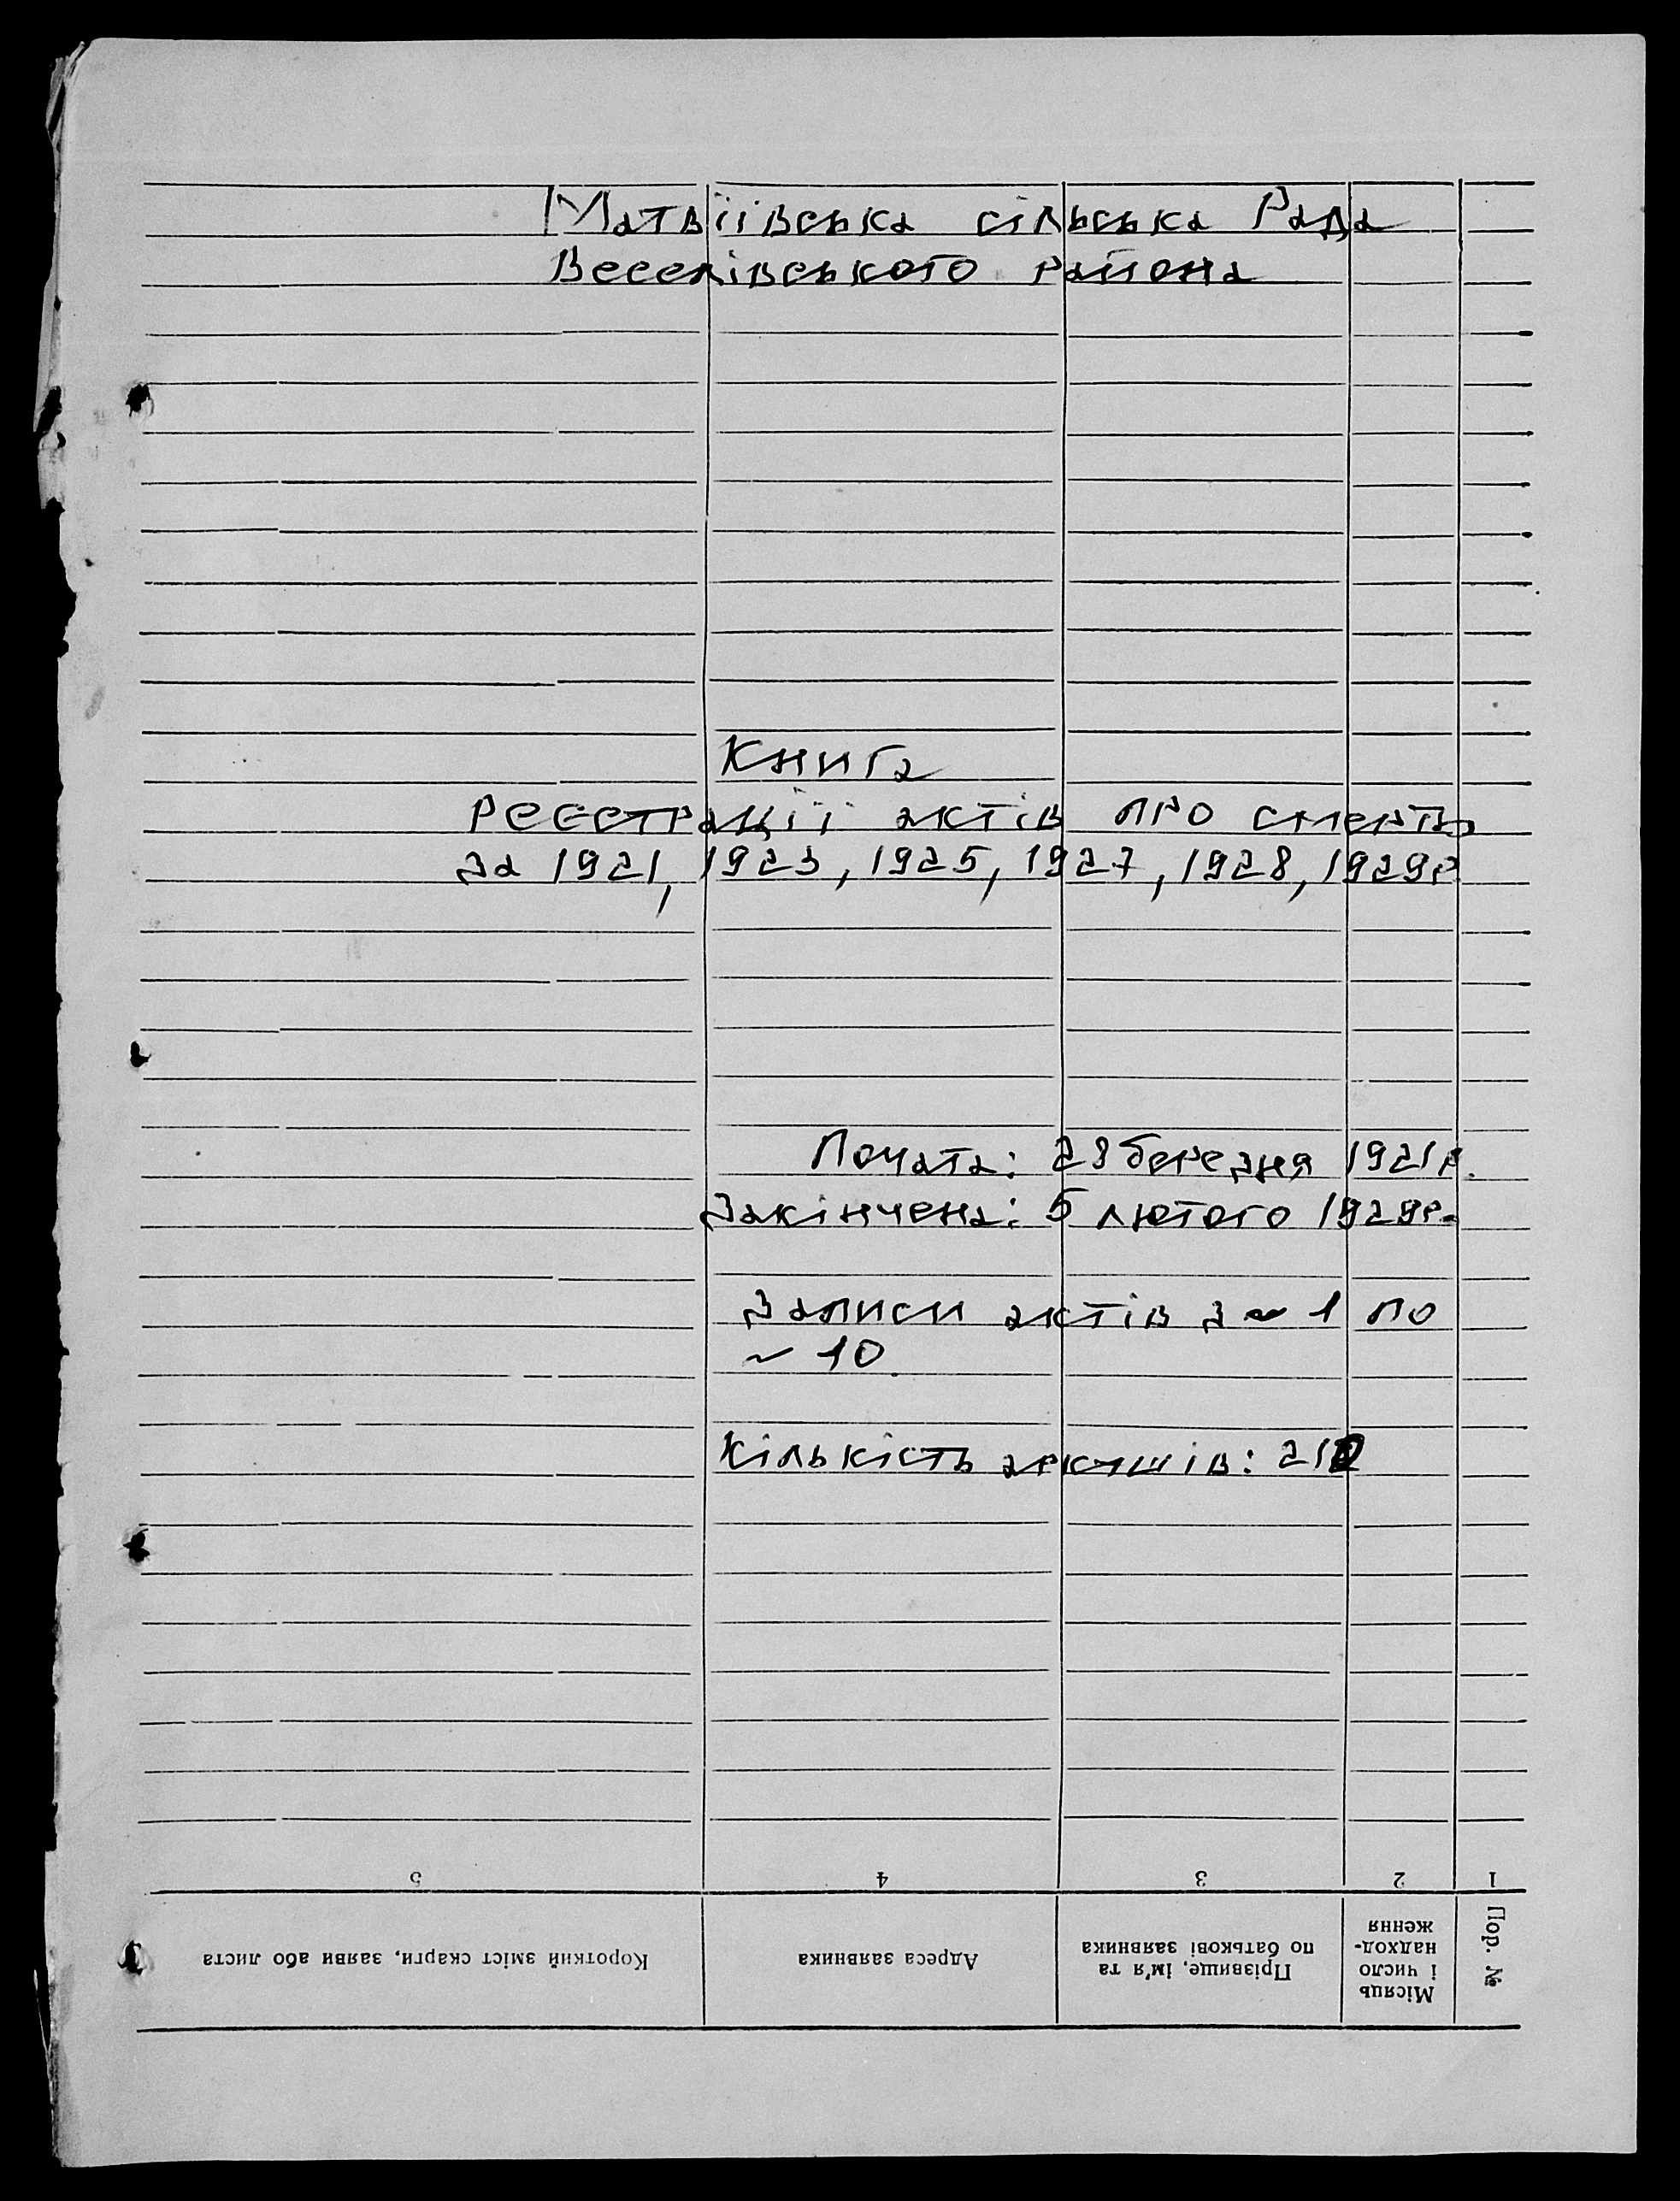 Матвіївська сільська Рада
Веселівського района
Книга
реєстрації актів про смерть
за 1921, 1923, 1925, 1927, 1928, 1929р
Почата: 28 березня 1921р.
Закінчена: 5 лютого 1929р.
Записи актів з ~ 1 по
~ 10.
Кількість аркушів:
1
2
3
4
5
Пор. №
Місяць
і число
надход-
ження
Прізвище, ім'я та
по батькові заявника
Адреса заявника
Короткий зміст скарги, заяви або листа